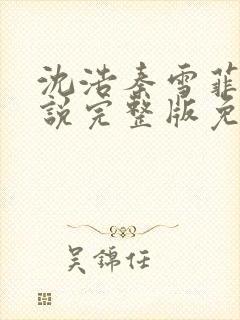 沈浩秦雪菲
說完整版免
吴錦任